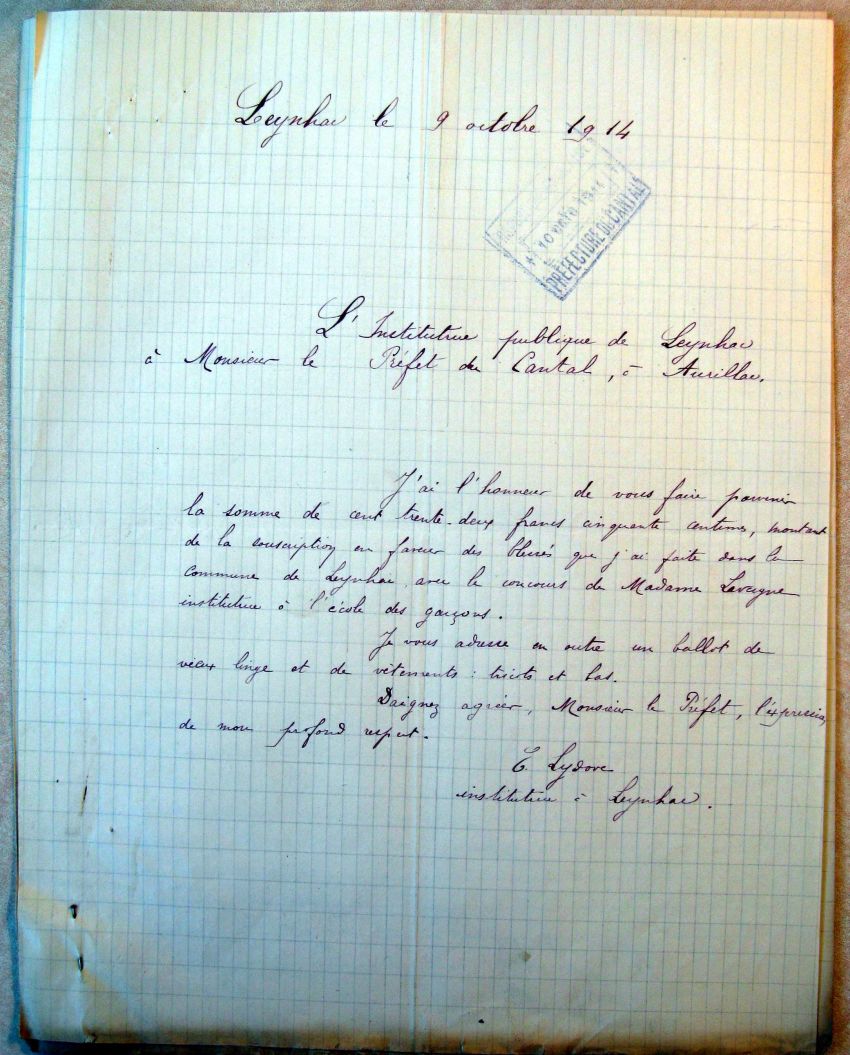 Leynhac le 9 octobre 1914
PRÉFECTURE DU CANTAL
L'Institutrice publique de Leynhac
à Monsieur le Préfet du Cantal, à Aurillac.
J'ai l'honneur de vous faire parvenir
la somme de cent trente-deux francs cinquante centimes, montant
de la souscription en faveur des blessés que j'ai faite dans la
commune de Leynhac, avec le concours de Madame
institutrice à l'école des garçons.
Je vous adresse en outre un ballot de
vieux linge et de vêtements : tricots et bas.
Daignez agréer, Monsieur le Préfet, l'expression
de mon profond respect.
Lydove
institutrice à Leynhac.